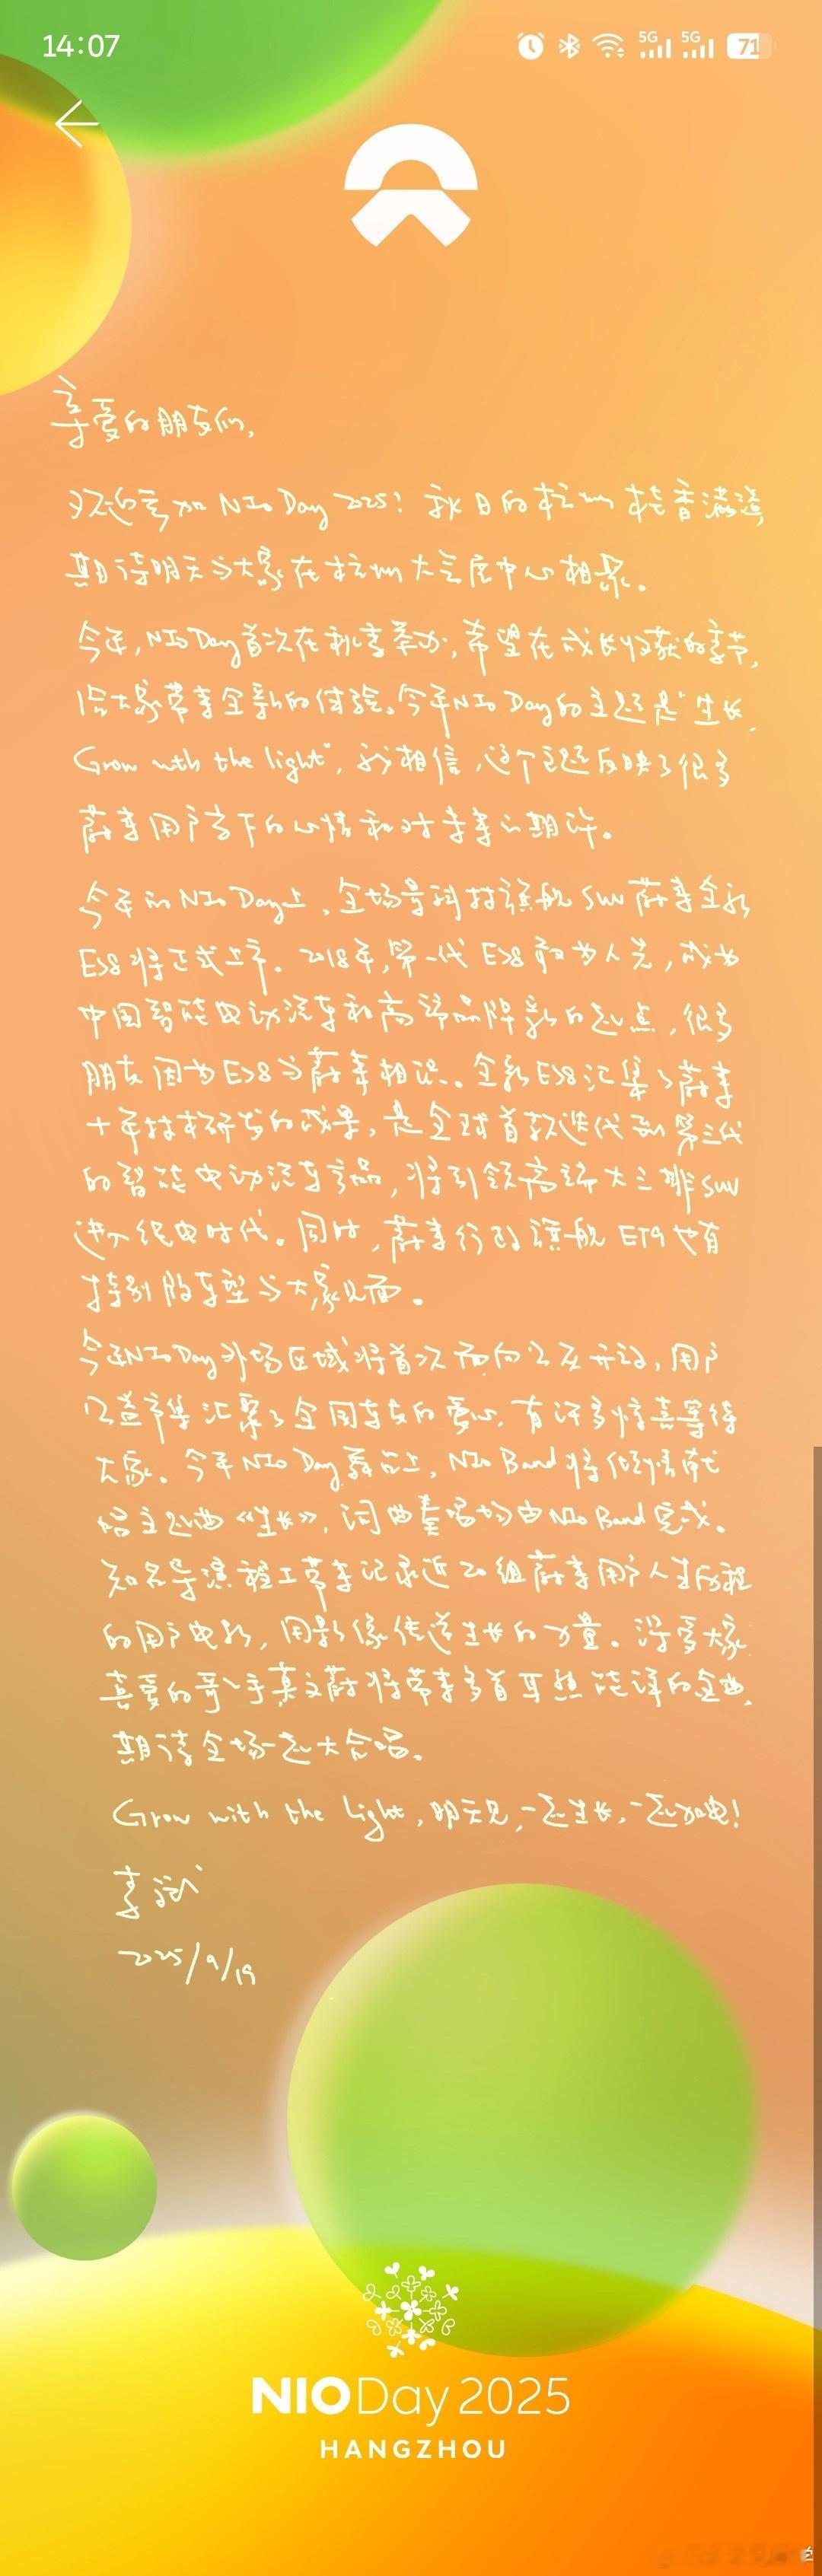 14:07
5G 5G 71
亲爱的朋友们,
欢迎参加 NIO Day 2025! 秋日的杭州 桂香满溢,
期待明天与大家在杭州大气层中心相聚。
今年, NIO Day首次在秋季举办, 希望在成长收获的季节,
给大家带来全新的体验。今年NIO Day的主题是"生长,
Grow with the light", 我相信, 这个主题反映了很多
蔚来用户当下的心情和对未来的期许。
今年的NIO Day上, 全场景科技旗舰SUV蔚来全新
ES8将正式上市。2018年, 第一代 ES8 敢为人先, 成为
中国智能电动汽车和高端品牌新的起点, 很多
朋友因为ES8与蔚来相识。全新ES8汇集了蔚来
十年技术研发的成果, 是全球首款迭代到第三代
的智能电动汽车产品, 将引领高端大三排SUV
进入纯电时代。同时, 蔚来行政旗舰 ET9 也有
特别版车型与大家见面。
今年NIO Day外场区域将首次面向公众开放, 用户
公益市集汇聚了全国车友的爱心, 有许多惊喜等待
大家。今年 NIO Day舞台上, NIO Band 将倾情献
唱主题曲《生长》, 词曲奏唱均由NIO Band完成。
知名导演程工带来记录近20组蔚来用户人生历程
的用户电影, 用影像传递生长的力量。深受大家
喜爱的歌手莫文蔚将带来多首耳熟能详的金曲,
期待全场一起大合唱。
Grow with the light, 明天见, 一起生长, 一起加电!
李斌
2025/9/19
NIO Day 2025
HANGZHOU